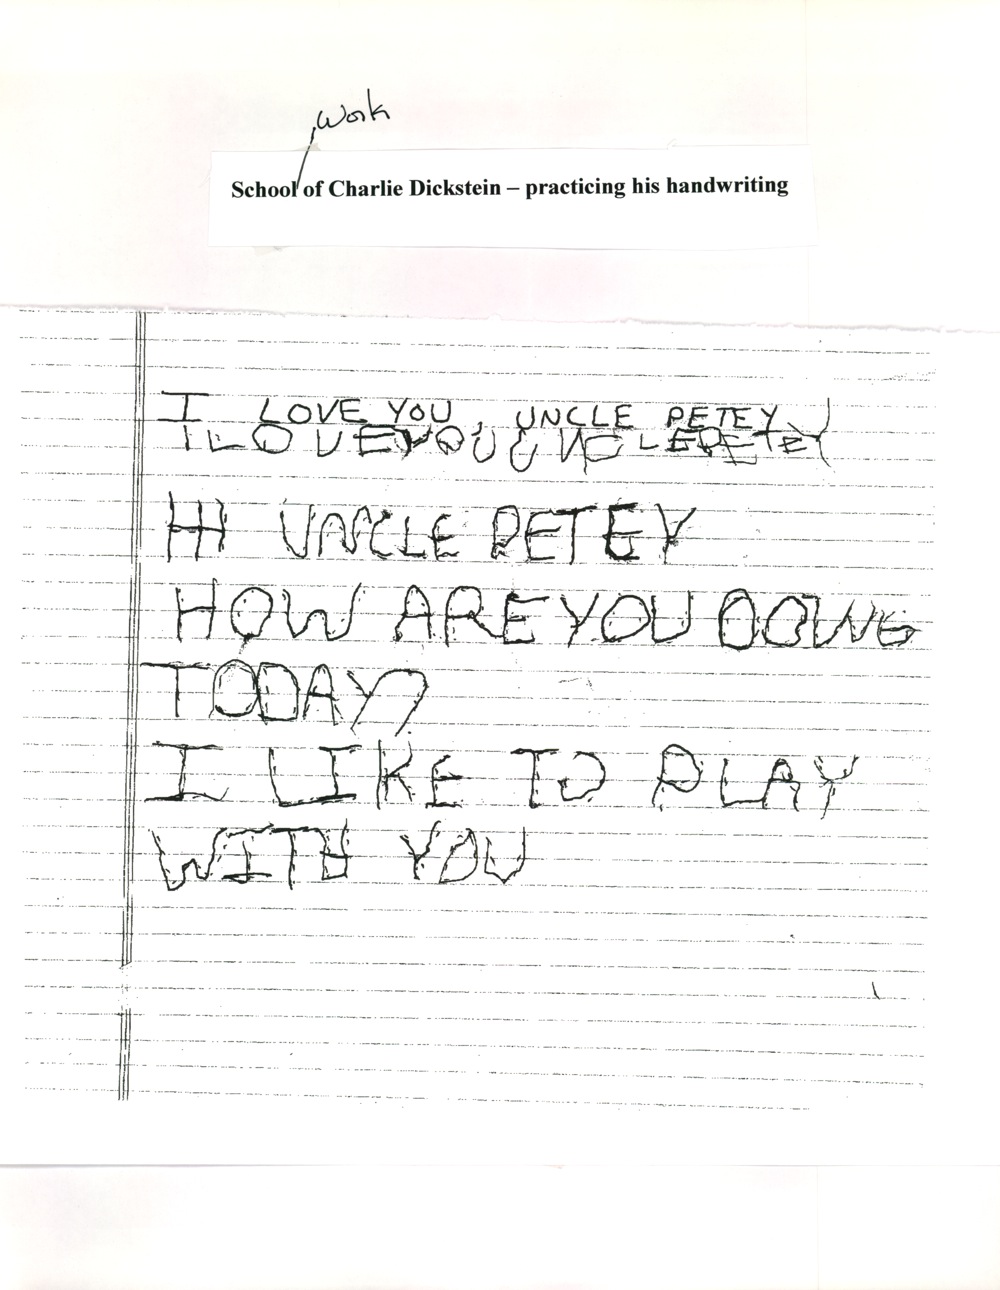 Work
School of Charlie Dickstein – practicing his handwriting
I LOVE YOU, UNCLE PETEY
I LOVE YOU UNCLE PETEY
HI UNCLE PETEY
HOW ARE YOU DOING
TODAY?
I LIKE TO PLAY
WITH YOU